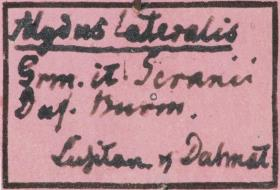 Alydus lateralis
Grm. it. Geranii
Duf. Burm.
Lusitan. & Dalmat.